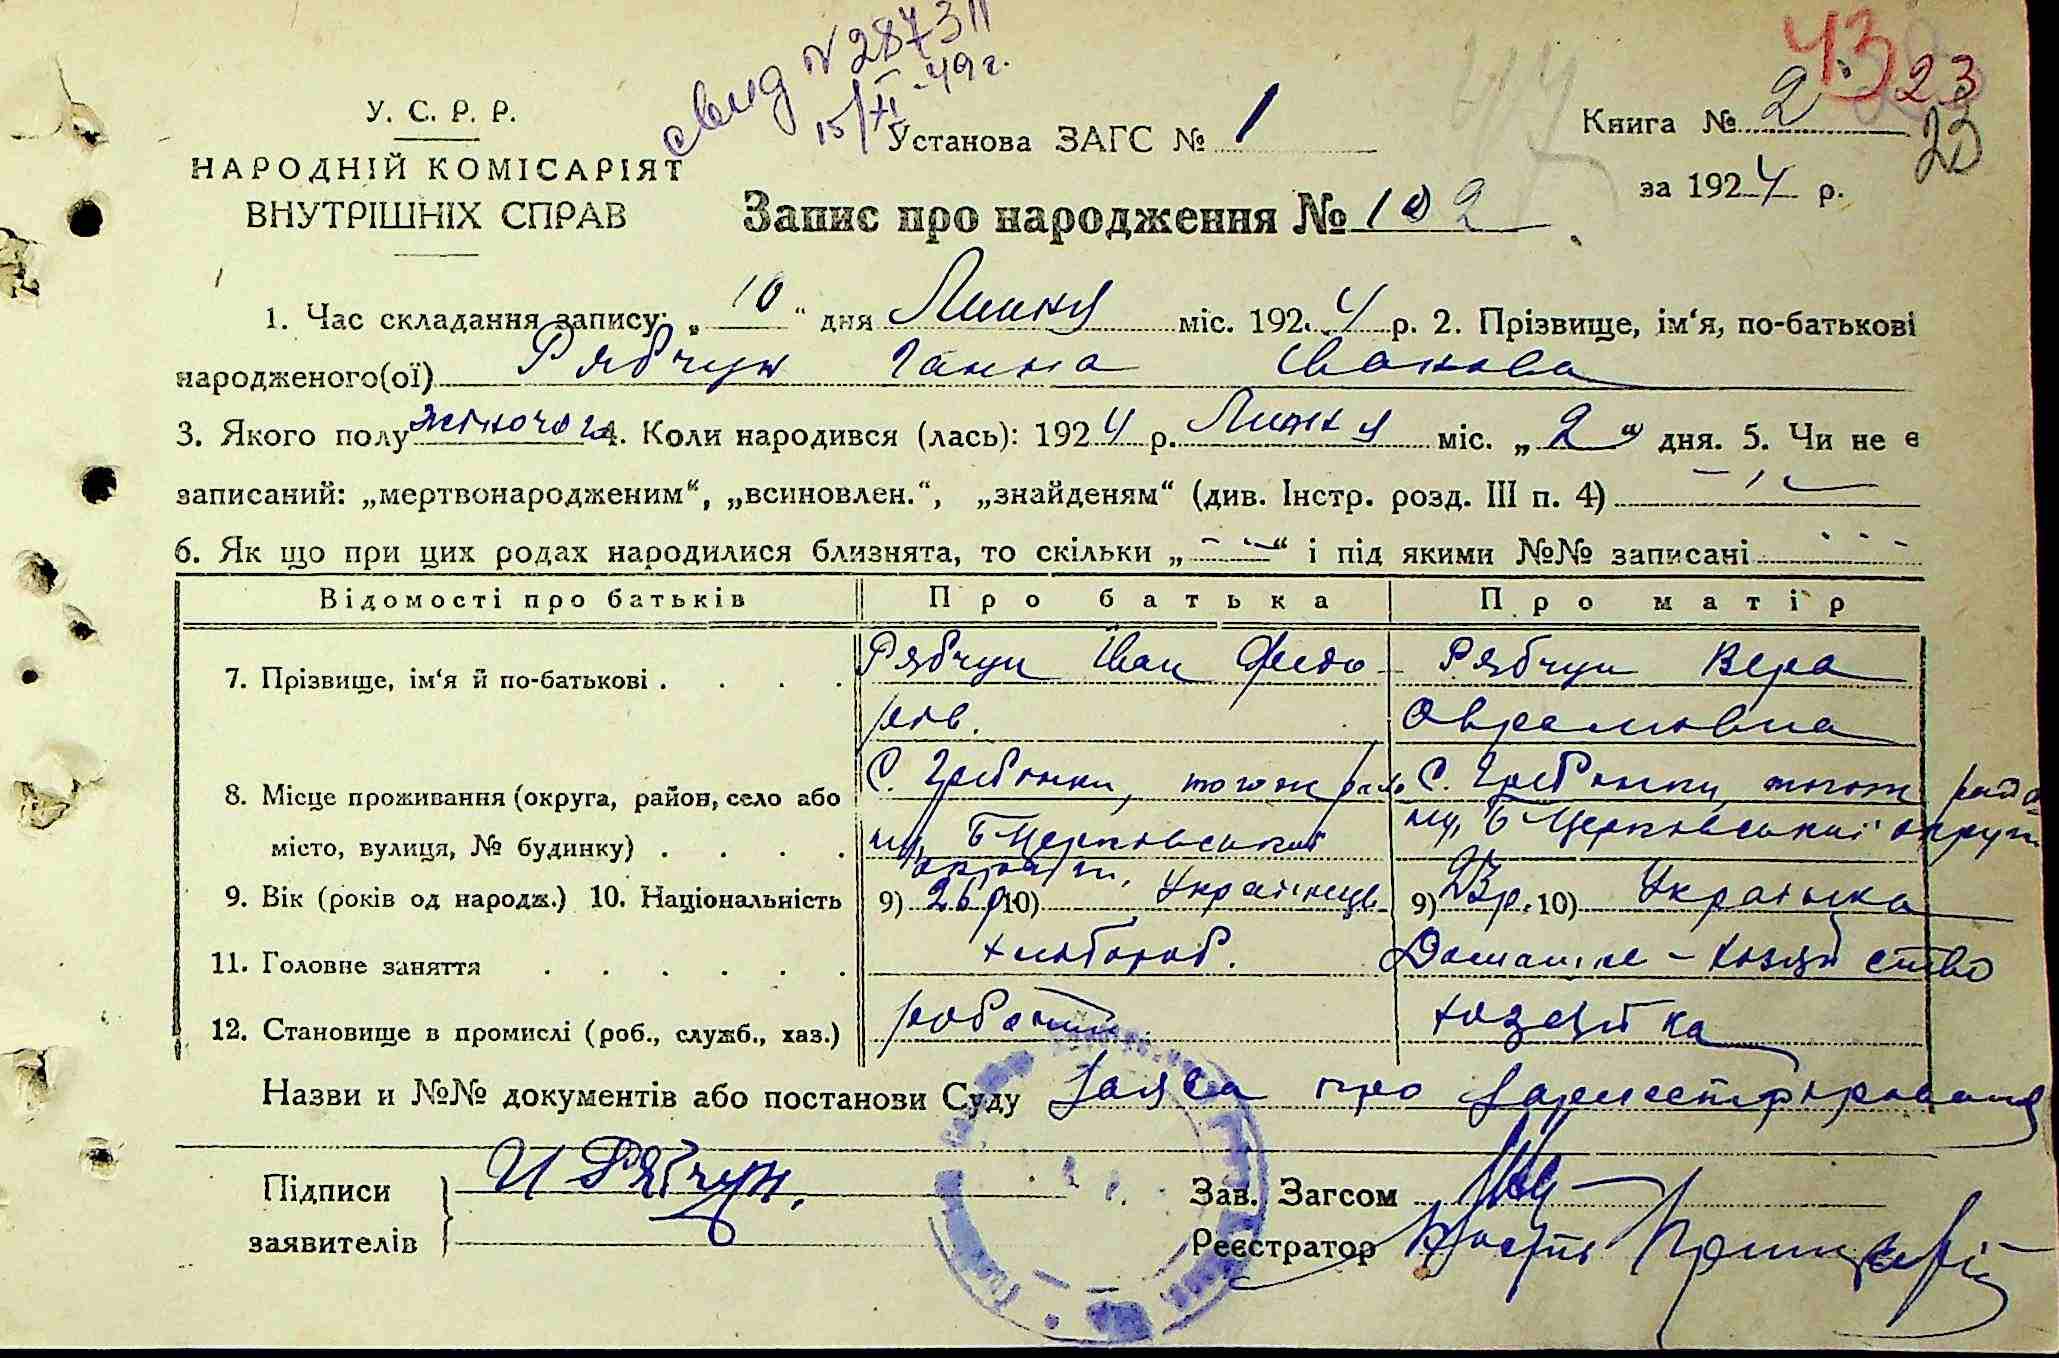 свид N 287311
15/XI - 49 г.
43 23
У. С. Р. Р.
Установа ЗАГС № 1
Книга № 2 23
НАРОДНІЙ КОМІСАРІЯТ
за 1924 р.
ВНУТРІШНІХ СПРАВ
Запис про народження № 102
1. Час складання запису: „ 10 “ дня Липня міс. 1924 р. 2. Прізвище, ім‘я, по-батькові
народженого(ої) Рябчун Ганна Іванова
3. Якого полу жіночого 4. Коли народився (лась): 1924 р. Липня міс. „ 2 “ дня. 5. Чи не є
записаний: „мертвонародженим“, „всиновлен.“, „знайденям“ (див. Інстр. розд. III п. 4)
6. Як що при цих родах народилися близнята, то скільки „ “ і під якими №№ записані
Відомості про батьків Про батька Про матір
7. Прізвище, ім‘я й по-батькові . . . . Рябчун Іван Федо- Рябчун Вера
ров. Оврамовна
8. Місце проживання (округа, район, село або С. Гребінки, тогож райо С. Гребінки тогож райо
місто, вулиця, № будинку) . . . . ну, Б Церковської ну, Б Церковської округи
округи,
9. Вік (років од народж.) 10. Національність 9) 26 р. 10) Українець 9) 23 р. 10) Українка
11. Головне заняття . . . . . . хлібороб. Домашнє - хозяйство
12. Становище в промислі (роб., служб., хаз.) робочий хозяйка
Назви и №№ документів або постанови Суду Заява про зареєстрировання
Підписи И Рябчун.
Зав. Загсом
заявителів
Реєстратор